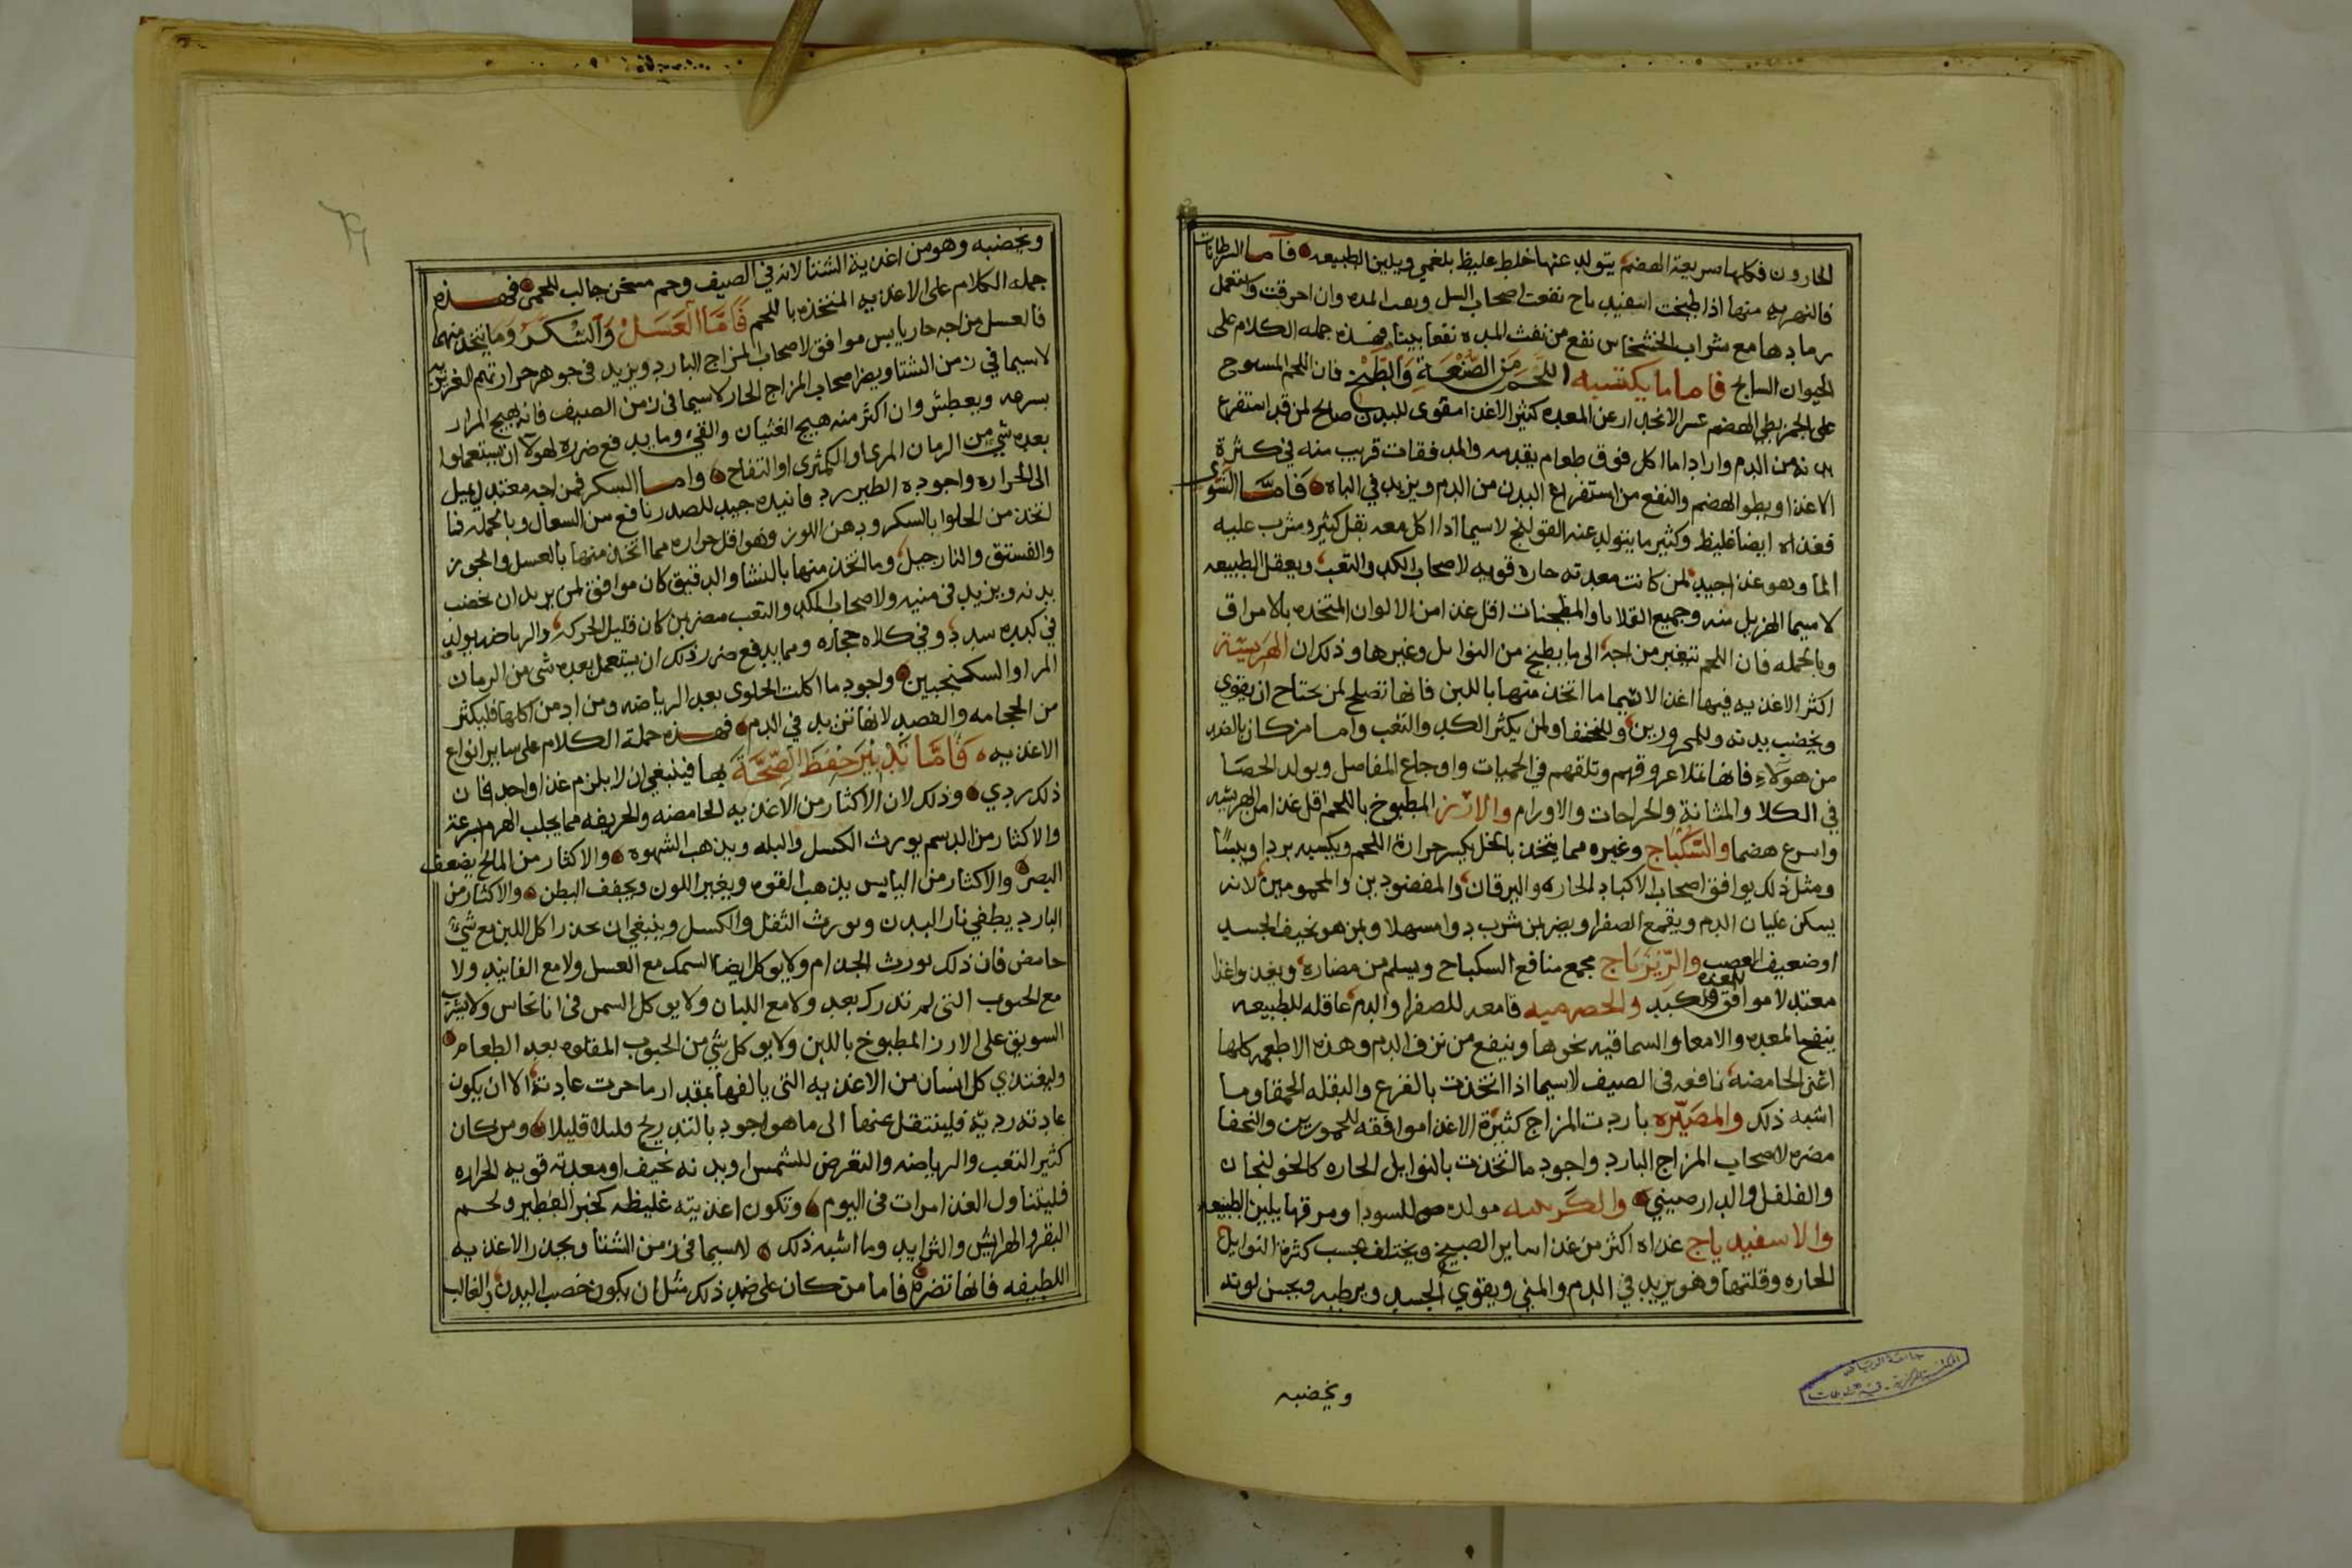 الحارون فكلها سريعة الهضم يتولد عنها خلط غليظ بلغمي ويلين الطبيعه فاما السرطانات
فالنهريه منها اذا طبخت اسفيدباج نفعت اصحاب السل وبعث المده وان احرقت واستعمل
رمادها مع شراب الخشخاش نفع من نفث المده نفعا بينا فهذه جمله الكلام على
الحيوان السابح فاما ما يكتسبه اللحم من الصنعة والطبخ فان اللحم المسوح
على الجمر بطي الهضم عسر الانحدار عن المعده كثير الاغذا مقوى للبدن صالح لمن قد استفرغ
بدنه من الدم وارادا ما اكل فوق طعام يقدمه والمدفقات قريب منه في كثرة
الاغذا وبطو الهضم والنفع من استفراغ البدن من الدم ويزيد في الباه فاما الشوى
فغذاه ايضا غليظ وكثير ما يتولد عنه القولنج لاسيما اذا اكل معه بقل كثير وشرب عليه
الما وهو غذا جيد لمن كانت معدته حاره قويه لاصحاب الكد والتعب ويعقل الطبيعه
لاسيما الهزيل منه وجميع القلايا والمطجنات اقل غذا من الالوان المتخذه بالامراق
وبالجمله فان اللحم تتغير مزاجه الى ما يطبخ من التوابل وغيرها وذلك ان الهريسة
اكثر الاغذيه فيها اغذا لاسيما ما اتخذ منها باللبن فانها تصلح لمن يحتاج ان يقوي
ويخضب بدنه وللمحرورين وللنحفا ولمن يكثر الكد والتعب واما من كان بالضد
من هؤلاء فانها تملا عروقهم وتلقهم في الحميات واوجاع المفاصل ويولد الحصا
في الكلا والمثانة والخراجات والاورام والارز المطبوخ باللحم اقل غذا من الهريسه
واسرع هضما والسكباج وغيره مما يتخذ بالخل يكسر حرارة اللحم ويكسبه بردا ويبسا
ومثل ذلك يوافق اصحاب الاكباد الحاره واليرقان والمفصودين والمحمومين لانه
يسكن غليان الدم ويقمع الصفرا ويضر بمن شرب دوا مسهلا وبمن هو نحيف الجسد
او ضعيف العصب والزيرباج مجمع منافع السكباج ويسلم من مضاره ويغذوا غذا
معتدلا موافق للمعده والكبد والحصرميه قامعه للصفرا والدم عاقله للطبيعه
ينفع المعده والامعا والسماقيه نحوها وينفع من نزف الدم وهذه الاطعمه كلها
اعنى الحامضه نافعه فى الصيف لاسيما اذا اتخذت بالقرع والبقله الحمقا وما
اشبه ذلك والمضيره باردت المزاج كثيرة الاغذا موافقه للمحورين والنحفا
مضره لاصحاب المزاج البارد واجود ما اتخذت بالتوابل الحاره كالخولنجان
والفلفل والدارصيني والكرنبيه مولده للسودا ومرقها يلين الطبيعه
والاسفيدباج غذاه اكثر من غذا ساير الصبيخ ويختلف بحسب كثرة التوابل
الحاره وقلتها وهو يزيد في الدم والمني ويقوي الجسد ويرطبه ويحسن لونه
ويخضبه
ويخضبه وهو من اغذية الشتا لانه في الصيف وحم مسخن جالب للحمى فهذه
جمله الكلام على الاغذيه المتخذه باللحم فاما العسل والسكر وما يتخذ منهما
فالعسل مزاجه حار يابس موافق لاصحاب المزاج البارد ويزيد فى جوهر حرارتهم الغريزيه
لاسيما في زمن الشتا ويضر اصحاب المزاج الحار لاسيما فى زمن الصيف فانه يهيج المرار
بسرعه ويعطش وان اكثر منه هيج الغثيان والقيء وما يدفع ضرره لهولا ان يستعملوا
بعده شي من الرمان المر او الكمثرى او التفاح واما السكر فمزاجه معتدل يميل
الى الحراره واجوده الطبرزد فانيده جيد للصدر نافع من السعال وبالجمله فما
اتخذ من الحلوا بالسكر ودهن اللوز فهو اقل حراره مما اتخذ منها بالعسل والجوز
والفستق والنارجيل وما اتخذ منها بالنشا والدقيق كان موافق لمن يريد ان يخضب
بدنه ويزيد فى منيه ولاصحاب الكد والتعب مضر بمن كان قليل الحركه والرياضه يولد
في كبده سدد وفي كلاه حجاره ومما يدفع ضرر ذلك ان يستعمل بعده شى من الرمان
المر او السكنجبين واجود ما اكلت الحلوى بعد الرياضه ومن ادمن اكلها فليكثر
من الحجامه والفصد لانها تزيد في الدم فهذه جملة الكلام على ساير انواع
الاغذيه فاما تدبير حفظ الصحة بها فينبغي ان لا يلزم غذا واحد فان
ذلك ردي وذلك لان الاكثار من الاغذيه الحامضه والحريفه مما يجلب الهرم بسرعة
والاكثار من الدسم يورث الكسل والبله ويذهب الشهوه والاكثار من المالح يضعف
البصر والاكثار من اليابس يذهب القوه ويغير اللون ويجفف البطن والاكثار من
البارد يطفي نار البدن ويورث الثقل والكسل وينبغي ان يحذر اكل اللبن مع شيء
حامض فان ذلك يورث الجذام ولا يوكل ايضا السمك مع العسل ولا مع الفانيد ولا
مع الحبوب التى لم تدرك بعد ولا مع اللبان ولا يوكل السمن فى انا نحاس ولا يشرب
السويق على الارز المطبوخ باللبن ولا يوكل شي من الحبوب المقلوه بعد الطعام
وليغتذي كل انسان من الاغذيه التى يالفها بمقدار ما جرت عادته الا ان يكون
عادته رديّه فلينتقل عنها الى ما هو اجود بالتدريج قليلا قليلا ومن كان
كثير التعب والرياضه والتعرض للشمس او بدنه نحيف او معدته قويه الحراره
فليتناول الغذا مرات فى اليوم وتكون اغذيته غليظه كخبز الفطير ولحم
البقر والهرايس والثرايد وما اشبه ذلك لاسيما فى زمن الشتا ويحذر الاغذيه
اللطيفه فانها تضره فاما من كان على ضد ذلك مثل ان يكون خصب البدن والغالب